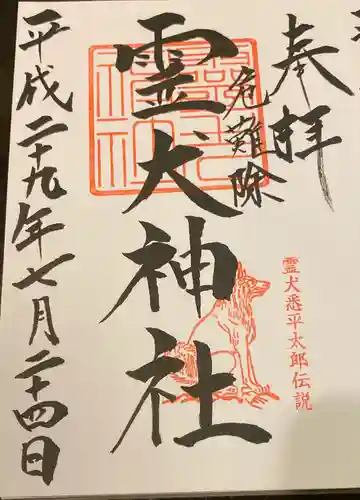 奉拝
免難除
霊犬神社
霊犬悉平太郎伝説
平成二十九年七月二十四日